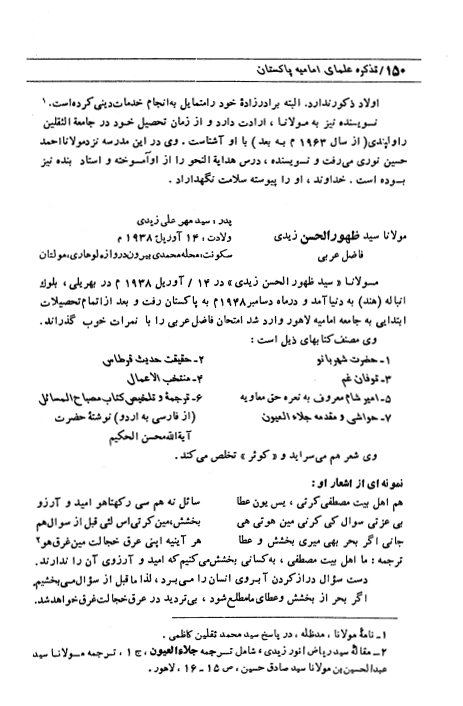 ۱۵۰/تذکره علمای امامیه پاکستان
اولاد ذکور ندارد. البته برادرزادهٔ خود را متمایل به انجام خدمات دینی کرده است.۱
نویسنده نیز به مولانا، ارادت دارد و از زمان تحصیل خود در جامعة الثقلین
راولپندی (از سال ۱۹۶۳ م به بعد) با او آشناست. وی در این مدرسه نزد مولانا احمد
حسین نوری می‌رفت و نویسنده، درس هدایة النحو را از او آموخته و استاد بنده نیز
بوده است. خداوند، او را پیوسته سلامت نگهدارد.
پدر: سید مهر علی زیدی
مولانا سید ظهورالحسن زیدی ولادت: ۱۴ آوریل ۱۹۳۸ م
فاضل عربی سکونت: محله محمدی بیرون دروازه لوهاری، مولتان
مولانا «سید ظهور الحسن زیدی» در ۱۴ / آوریل ۱۹۳۸ م در بهریلی، بلوك
انباله (هند) به دنیا آمد و در ماه دسامبر ۱۹۴۸م به پاکستان رفت و بعد از اتمام تحصیلات
ابتدایی به جامعه امامیه لاهور وارد شد امتحان فاضل عربی را با نمرات خوب گذراند.
وی مصنف کتابهای ذیل است:
۱- حضرت شهربانو ۲- حقیقت حدیث قرطاس
۳- توفان غم ۴- منتخب الاعمال
۵- امیر شام معروف به نعره حق معاویه ۶- ترجمهٔ و تلخیص کتاب مصباح المسائل
۷- حواشی و مقدمه جلاء العیون (از فارسی به اردو) نوشتهٔ حضرت
آیة‌الله محسن الحکیم
وی شعر هم می‌سراید و «کوثر» تخلص می‌کند.
نمونه‌ای از اشعار او:
هم اهل بیت مصطفی کرتی، بس یون عطا سائل نه هم سی رکهتا هو امید و آرزو
بی عزتی سوال کی کرنی مین هوتی هی بخشش، مین کرتی اس لئی قبل از سوال هم
جانی اگر بحر بهی میری بخشش و عطا هر آینیه اپنی عرق خجالت مین غرق هو۲
ترجمه: ما اهل بیت مصطفی، به کسانی بخشش می‌کنیم که امید و آرزوی آن را ندارند.
دست سؤال دراز کردن آبروی انسان را می‌برد، لذا ما قبل از سؤال می‌بخشیم.
اگر بحر از بخشش و عطای ما مطلع شود، بی‌تردید در عرق خجالت غرق خواهد شد.
۱- نامهٔ مولانا، مدظله، در پاسخ سید محمد ثقلین کاظمی.
۲- مقالهٔ سید ریاض انور زیدی، شامل ترجمه جلاء العیون، ج ۱، ترجمه مولانا سید
عبدالحسین بن مولانا سید صادق حسین، ص ۱۵-۱۶، لاهور.